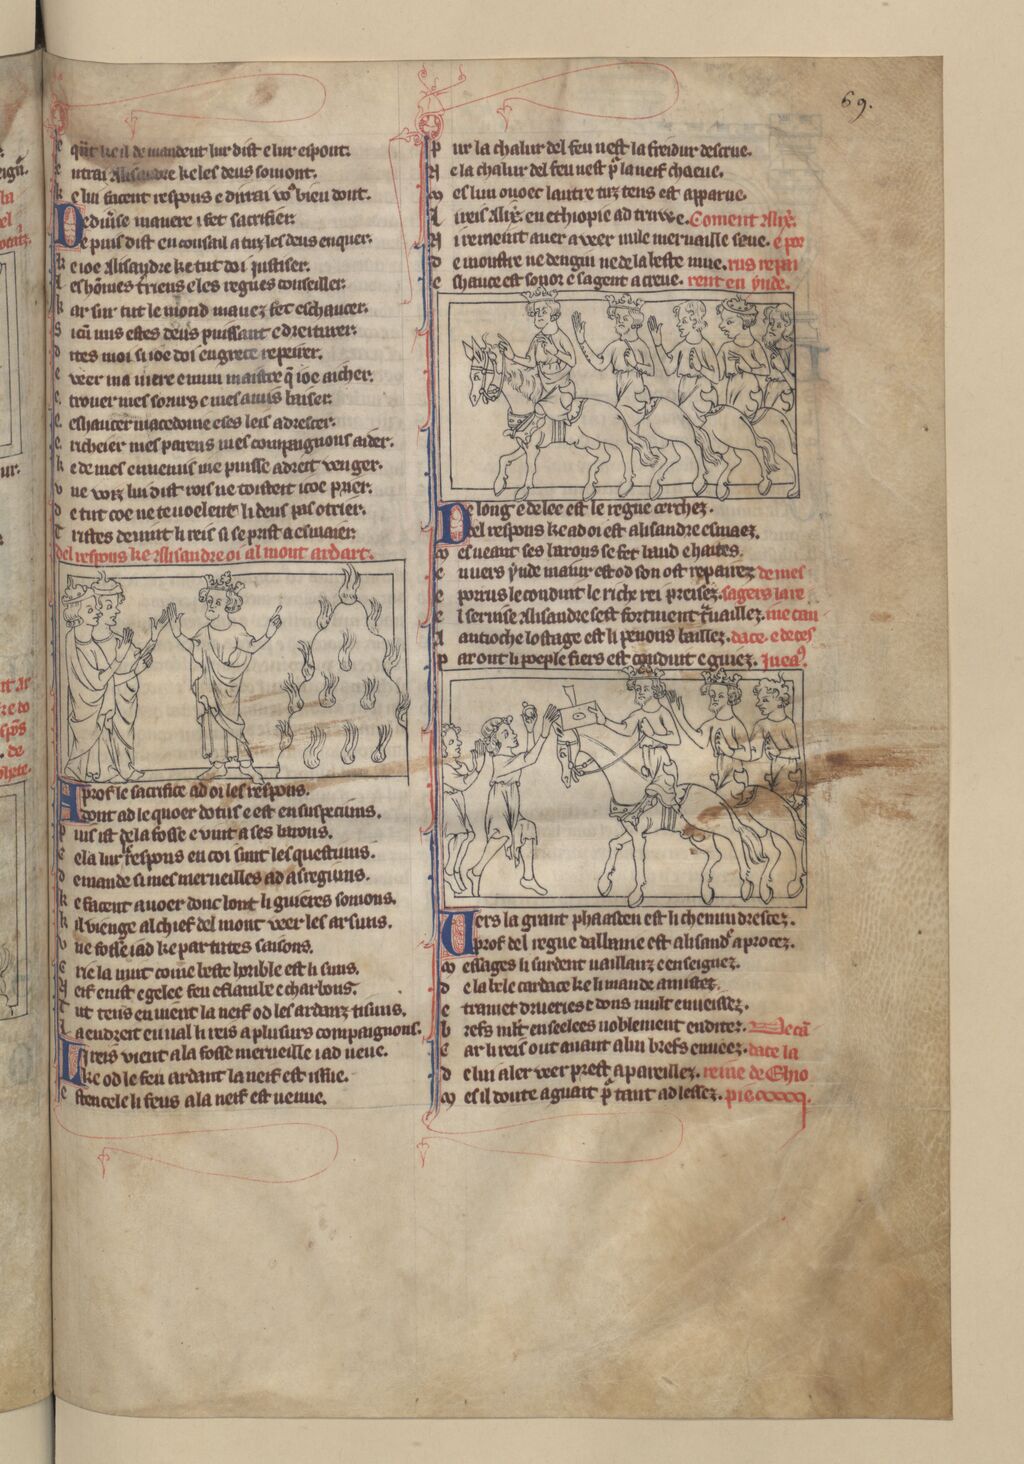 69.
q̃nt ke il demandent lur dist e lur espont.
e ntrai Alisandre ke les deus somont.
k e lui facent respons e dirrai vo9 bien dont.
De diu̾se manere i fet sacrifier.
E puis dist en consail a tuz les deus enquer.
k e ioe Alisandre ke tut doi iustiser.
l es hõmes t̾riens e les regnes conseiller.
k ar sur tut le mond mauez fet eschaucer.
S icũ uus estes deus puissant e dreiturer.
d ites moi si ioe doi en grece repeirer.
e veer ma mere e mun maistre q̃ ioe ai cher.
e trouer mes sorurs e mes amis baiser.
e shaucer macedoine e ses leis adrescer.
e richeier mes parens mes compaignons aider.
k e de mes enemis me puisse a dreit venger.
v ne voiz lui dist rois ne couient icoe prier.
d e tut coe ne te uoelent li deus pas otrier.
T ristes deuint li reis si se prist a esmaier.
del respons ke Alisandre oi al mont ardart.
Aprof le sacrifice ad oi les respons.
dont ad le quoer dotus e est en suspecius.
P uis ist de la fosse e vint a ses barons.
e la lur respons en coi sunt les questiuns.
d emande si mes merueilles ad as regiuns.
k e facent auoer donc lont li guieres somons.
k il vienge al chief del mont veer les arsuns.
v ne fosse iad ke par tutes saisons.
c rie la nuit come beste horrible est li suns.
N eif en ist e gelee feu e flambe e charbons.
T ut tens en uient la neif od les ardanz tisuns.
L a en dreit en ual li reis a plusurs compaignons.
Li reis vient a la fosse merueille iad ueue.
ke od le feu ardant la neif est issue.
e stencele li feus a la neif est uenue.
P ur la chalur del feu nest la freidur descrue.
N e la chalur del feu nest p̃ la neif chaeue.
m es lun ouoec lautre tuz tens est apparue.
L i reis Alix̃. en ethiopie ad trawe. Coment Alix̃.
N i remeint auer a veer nule merueille seue. e por
d e monstre ne dengin ne de la beste mue. rus repai
e shauce est sonor e sa gent acreue. rent en ynde.
De long e de lee est le regne cerchez.
Del respons ke ad oi est alisandre esmaez.
m es ueant ses barons se fet baud e haites.
e nuers ynde maiur est od son ost repairez de mes
p orrus le conduit le riche rei preisez. sagers la re
e l seruise Alisandre sest forment t̃uaillez. ine can
A antioche lostage est li penons baillez. dace. e de ces
p ar ont li poeple fiers est conduit e guiez. iuea9.
Vers la grant phaasden est li chemin drescez.
Aprof del regne dallaine est alisand̾ aprocez.
m essages li surdent uaillanz e enseignez.
d e la bele candace ke li mande amistez.
e tramet drueries e dons mult enueisez.
b refs mlt̃ enseelees noblement enditez. De cã
C ar li reis out auant a lui brefs enueez. dace la
d e lui aler veer prest apareillez. reine de Ethio
m es il doute aguait p̃ tant ad lessez. pie